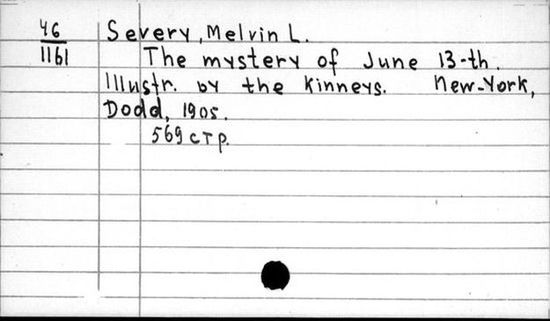 46
1161
Severy, Melvin L.
The mystery of June 13-th.
Illustr. by the Kinneys. New-York,
Dodd, 1905.
569 стр.